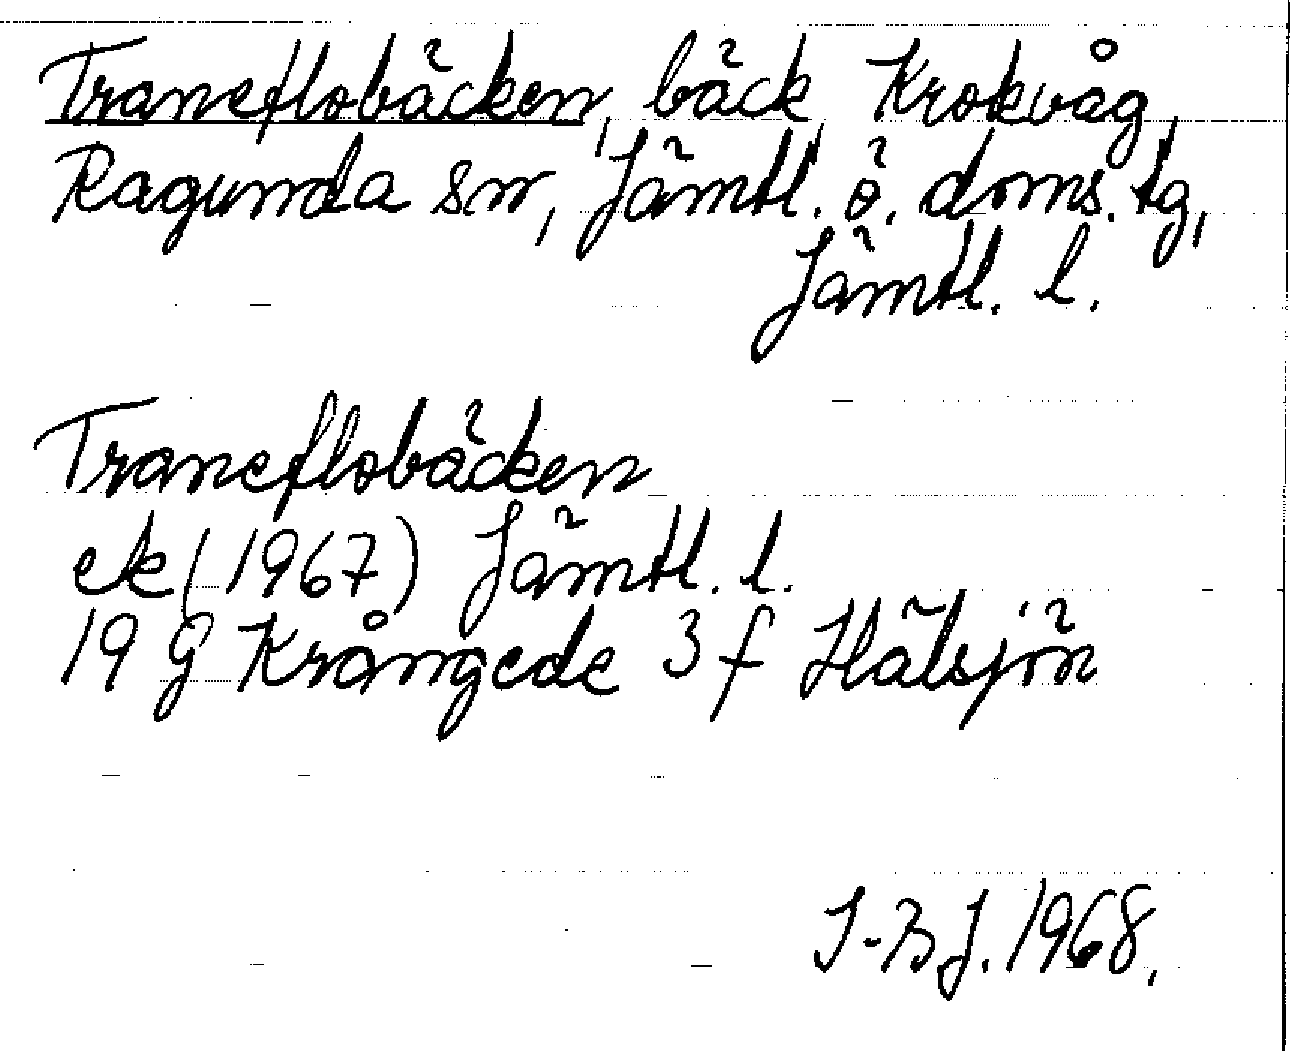 Traneflobäcken, bäck Krokvåg,
Ragunda sn, Jämtl. ö. doms. tg,
Jämtl. l.
Traneflobäcken
ek (1967) Jämtl. l.
19 G Krångede 3 f Hälsjön
I-BJ. 1968.